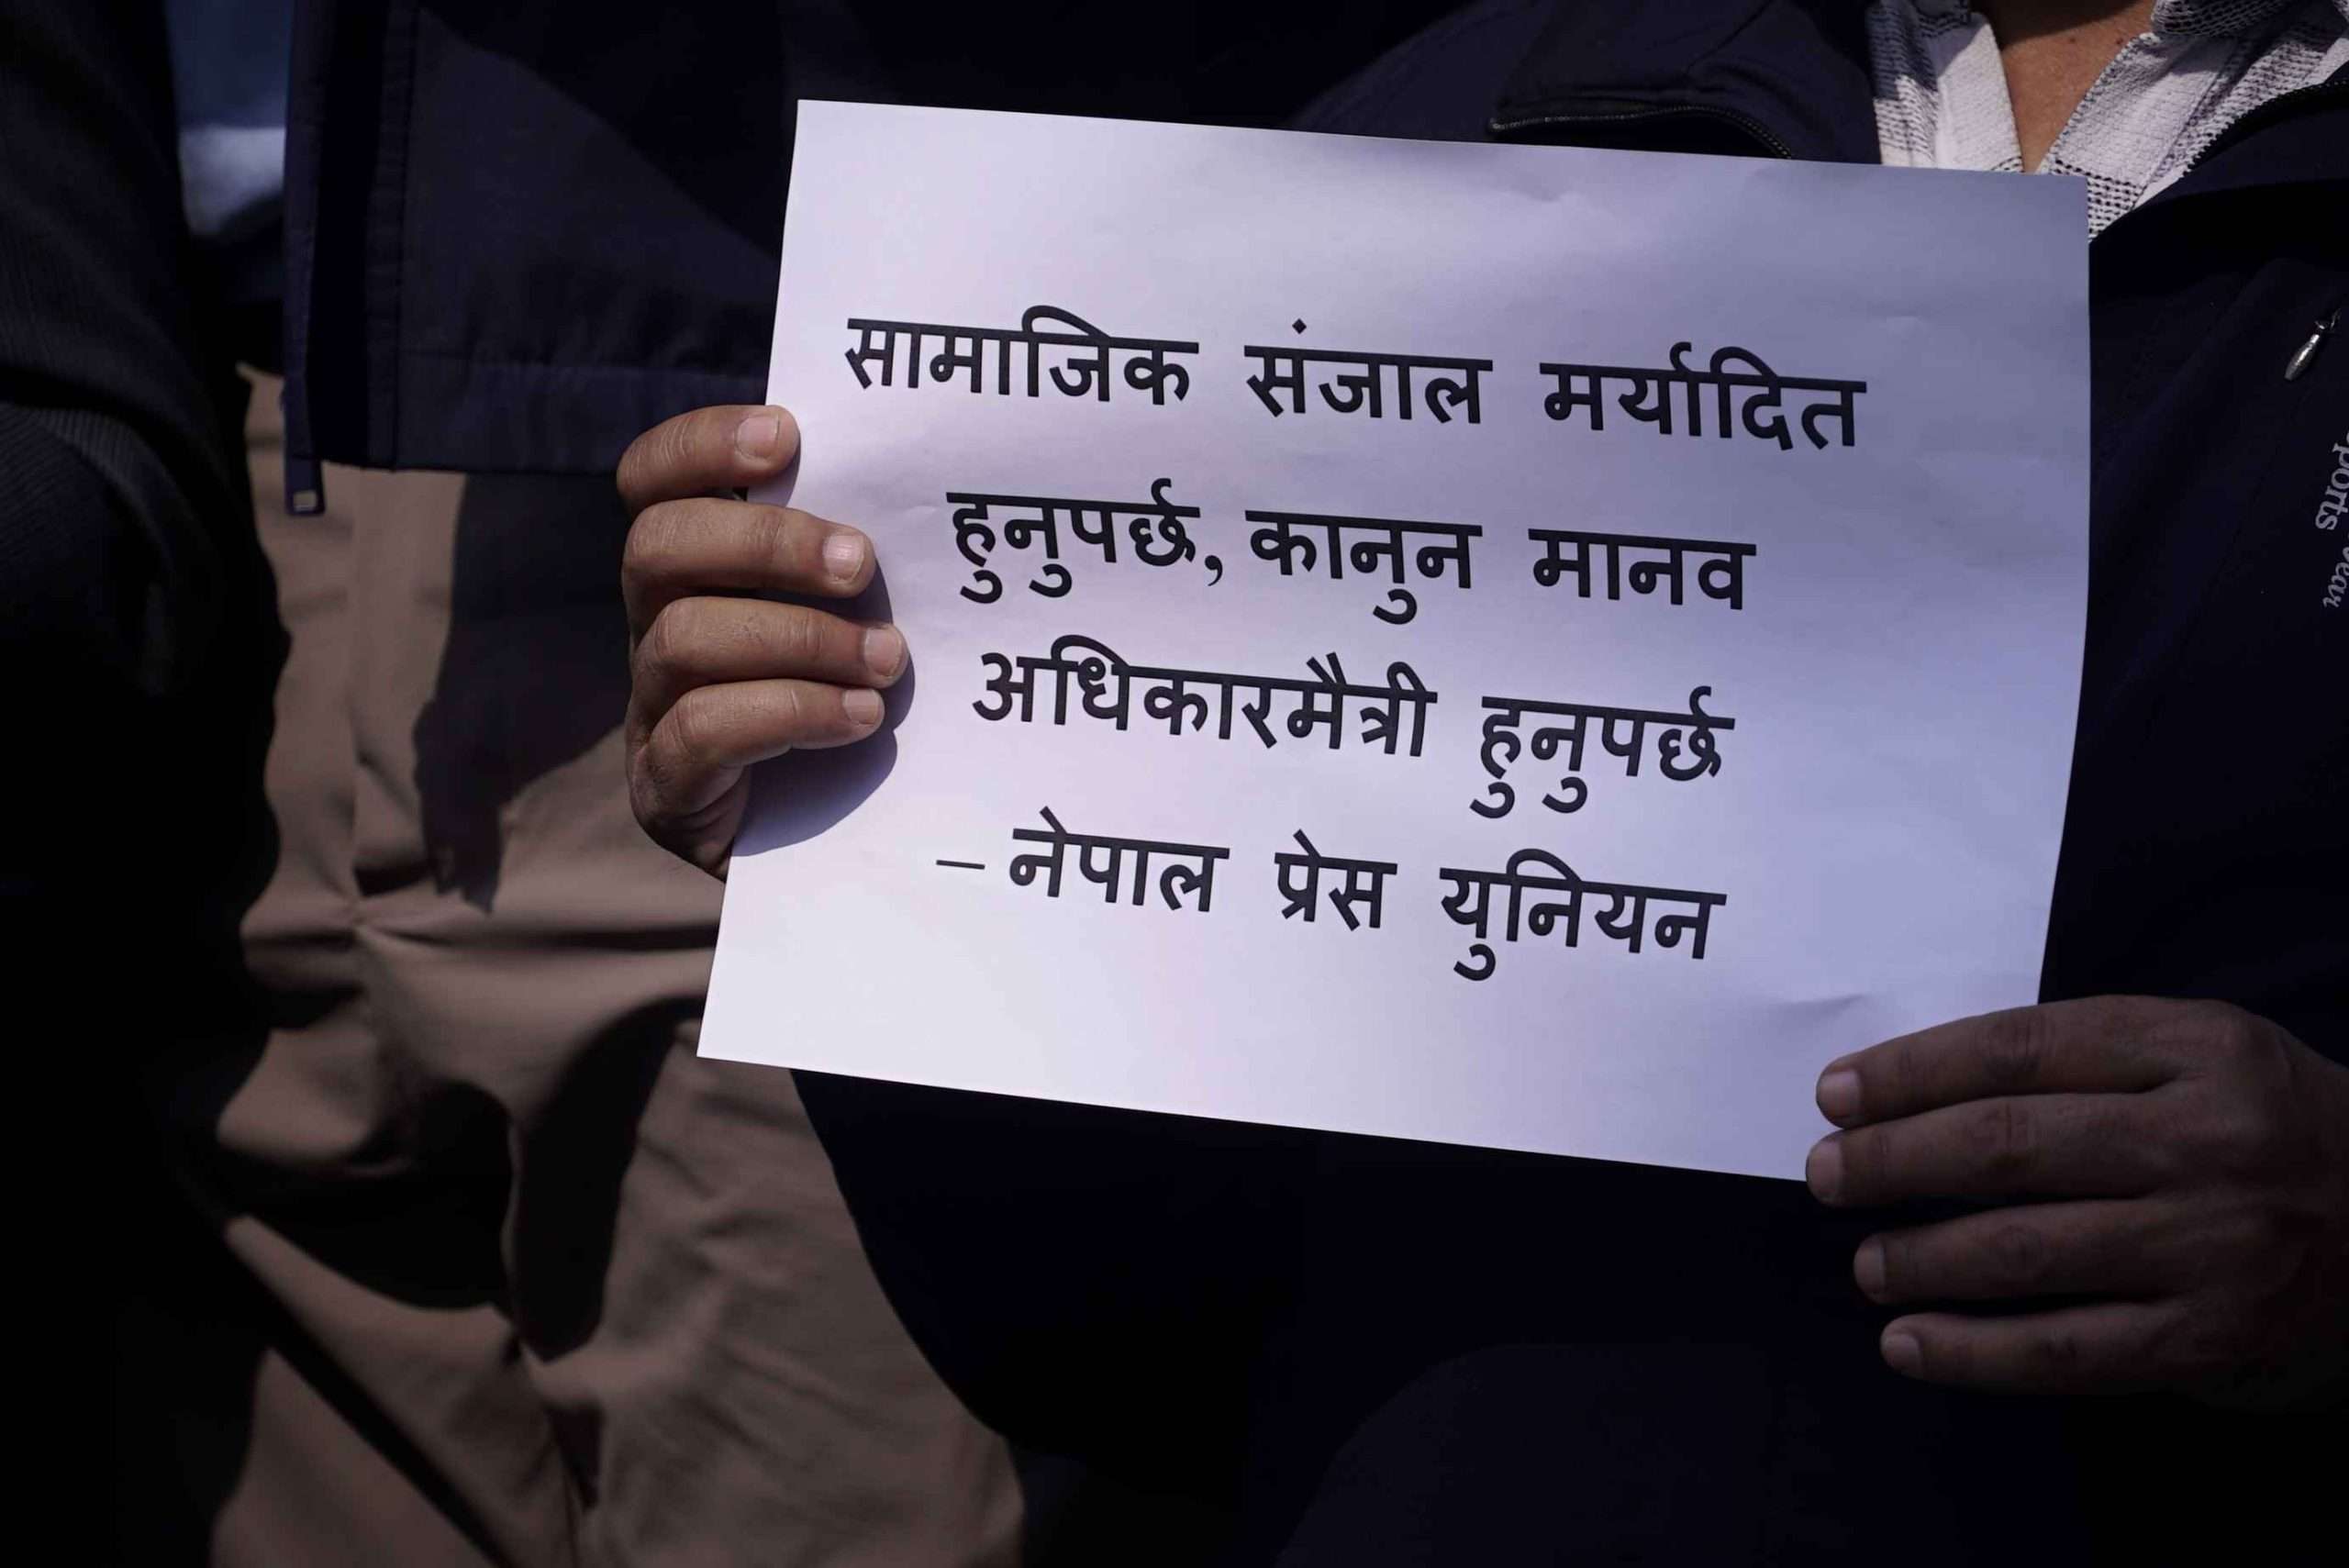 सामाजिक संजाल मर्यादित
हुनुपर्छ, कानुन मानव
अधिकारमैत्री हुनुपर्छ
– नेपाल प्रेस युनियन